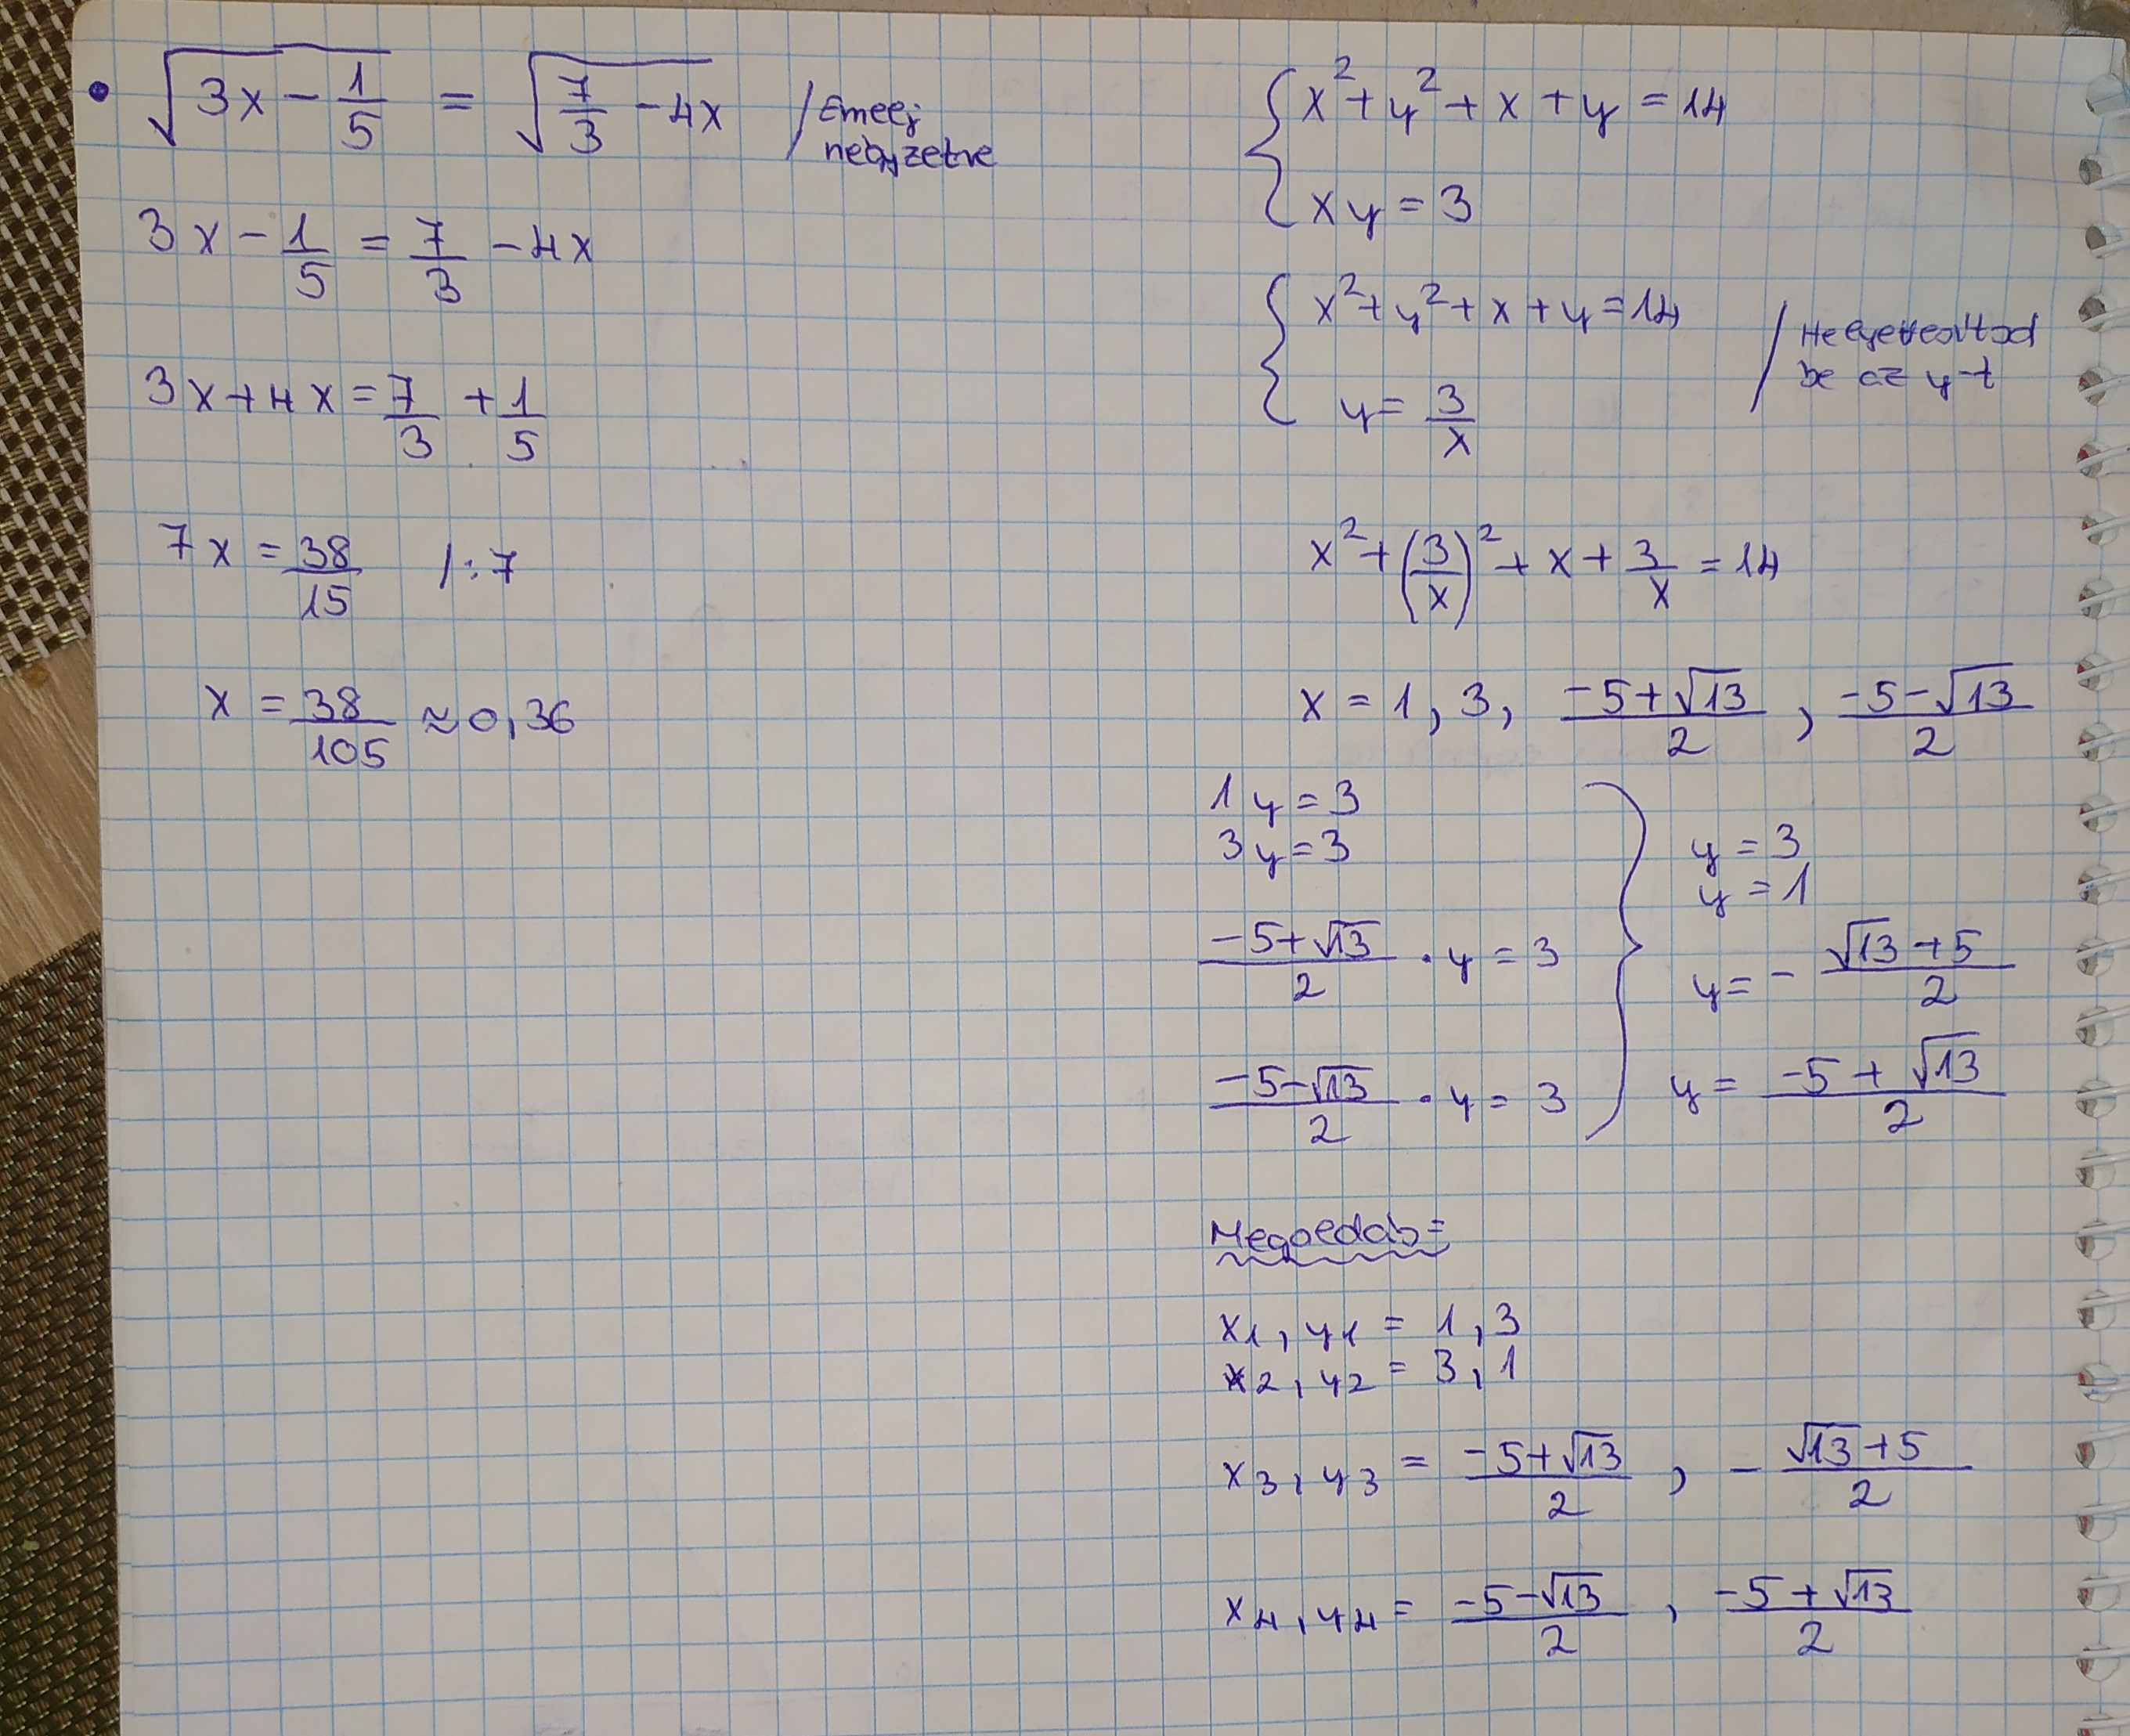 • √(3x − 1/5) = √(7/3 − 4x) / Emelj
négyzetre
3x − 1/5 = 7/3 − 4x
3x + 4x = 7/3 + 1/5
7x = 38/15 /:7
x = 38/105 ≈ 0,36
{ x² + y² + x + y = 14
xy = 3
{ x² + y² + x + y = 14 / Helyettesítsd
y = 3/x be az y-t
x² + (3/x)² + x + 3/x = 14
x = 1, 3, (−5+√13)/2, (−5−√13)/2
1y = 3
3y = 3
(−5+√13)/2 · y = 3
(−5−√13)/2 · y = 3
} y = 3
y = 1
y = − (√13+5)/2
y = (−5+√13)/2
Megoldás=
x1, y1 = 1, 3
x2, y2 = 3, 1
x3, y3 = (−5+√13)/2, − (√13+5)/2
x4, y4 = (−5−√13)/2, (−5+√13)/2